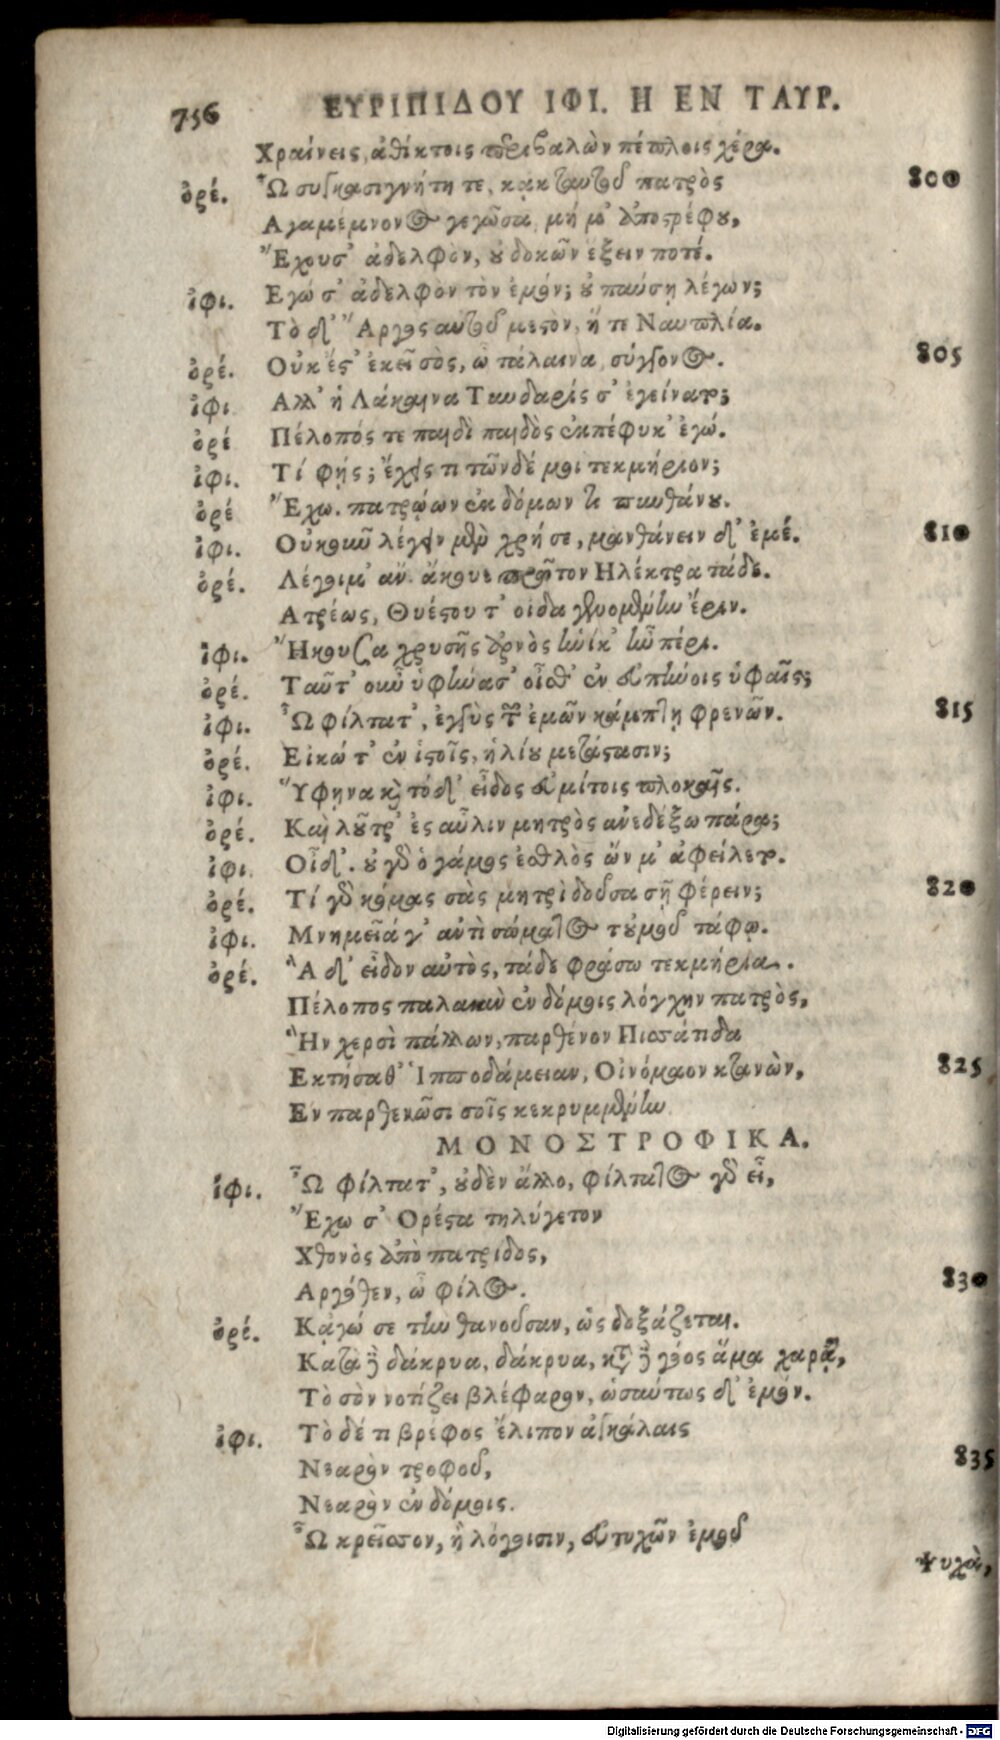 756 ΕΥΡΙΠΙΔΟΥ ΙΦΙ. Η ΕΝ ΤΑΥΡ.
Χραίνεις, ἀθίκτοις περιβαλὼν πέπλοις χέρα.
ὀρέ. Ὦ συγκασιγνήτη τε, κᾀκ ταυτοῦ πατρὸς 800
Αγαμέμνονος γεγῶσα, μή μ' ἀποστρέφου,
Ἔχουσ' ἀδελφὸν, οὐ δοκῶν ἕξειν ποτέ.
ἰφι. Εγώ σ' ἀδελφὸν τὸν ἐμόν; οὐ παύσῃ λέγων;
Τὸ δ' Ἄργος αὐτοῦ μεστὸν, ἥ τε Ναυπλία.
ὀρέ. Οὐκ ἔστ' ἐκεῖ σὸς, ὦ τάλαινα, σύγγονος. 805
ἰφι Αλλ' ἡ Λάκαινα Τυνδαρίς σ' ἐγείνατο;
ὀρέ Πέλοπός τε παιδὶ παιδὸς ἐκπέφυκ' ἐγώ.
ἰφι. Τί φῄς; ἔχεις τι τῶνδέ μοι τεκμήριον;
ὀρέ Ἔχω. πατρῴων ἐκ δόμων τι πυνθάνου.
ἰφι. Οὐκοῦν λέγειν μὲν χρή σε, μανθάνειν δ' ἐμέ. 810
ὀρέ. Λέγοιμ' ἄν. ἄκουε πρῶτον Ηλέκτρα τάδε.
Ατρέως, Θυέστου τ' οἶδα γενομένην ἔριν.
ἰφι. Ἤκουσα χρυσῆς ἀρνὸς ἡνίκ' ἦν πέρι.
ὀρέ. Ταῦτ' οὖν ὑφήνασ' οἶσθ' ἐν εὐπήνοις ὑφαῖς;
ἰφι. Ὦ φίλτατ', ἐγγὺς τῶν ἐμῶν κάμπτῃ φρενῶν. 815
ὀρέ. Εἰκώ τ' ἐν ἱστοῖς, ἡλίου μετάστασιν;
ἰφι. Ὕφηνα καὶ τόδ' εἶδος εὐμίτοις πλοκαῖς.
ὀρέ. Καὶ λοῦτρ' ἐς αὖλιν μητρὸς ἀνεδέξω πάρα;
ἰφι. Οἶδ'. οὐ γὰρ ὁ γάμος ἐσθλὸς ὤν μ' ἀφείλετο.
ὀρέ. Τί γὰρ κόμας σὰς μητρὶ δοῦσα σῇ φέρειν; 820
ἰφι. Μνημεῖά γ' ἀντὶ σώματος τοὐμοῦ τάφῳ.
ὀρέ. Ἃ δ' εἶδον αὐτὸς, τάδε φράσω τεκμήρια.
Πέλοπος παλαιὰν ἐν δόμοις λόγχην πατρὸς,
Ἣν χερσὶ πάλλων, παρθένον Πισάτιδα
Εκτήσαθ' Ἱπποδάμειαν, Οἰνόμαον κτανὼν, 825
Εν παρθενῶσι σοῖς κεκρυμμένην
ΜΟΝΟΣΤΡΟΦΙΚΑ.
ἰφι. Ὦ φίλτατ', οὐδὲν ἄλλο, φίλτατος γὰρ εἶ,
Ἔχω σ' Ορέστα τηλύγετον
Χθονὸς ἀπὸ πατρίδος,
Αργόθεν, ὦ φίλος. 830
ὀρέ. Κᾀγώ σε τὴν θανοῦσαν, ὡς δοξάζεται.
Κατὰ δὲ δάκρυα, δάκρυα, κατὰ δὲ γόος ἅμα χαρᾷ,
Τὸ σὸν νοτίζει βλέφαρον, ὡσαύτως δ' ἐμόν.
ἰφι. Τὸ δέ τι βρέφος ἔλιπον ἀγκάλαις
Νεαρὸν τροφοῦ, 835
Νεαρὸν ἐν δόμοις.
Ὦ κρεῖσσον, ἢ λόγοισιν, εὐτυχῶν ἐμοῦ
Ψυχὰ,
Digitalisierung gefördert durch die Deutsche Forschungsgemeinschaft - DFG